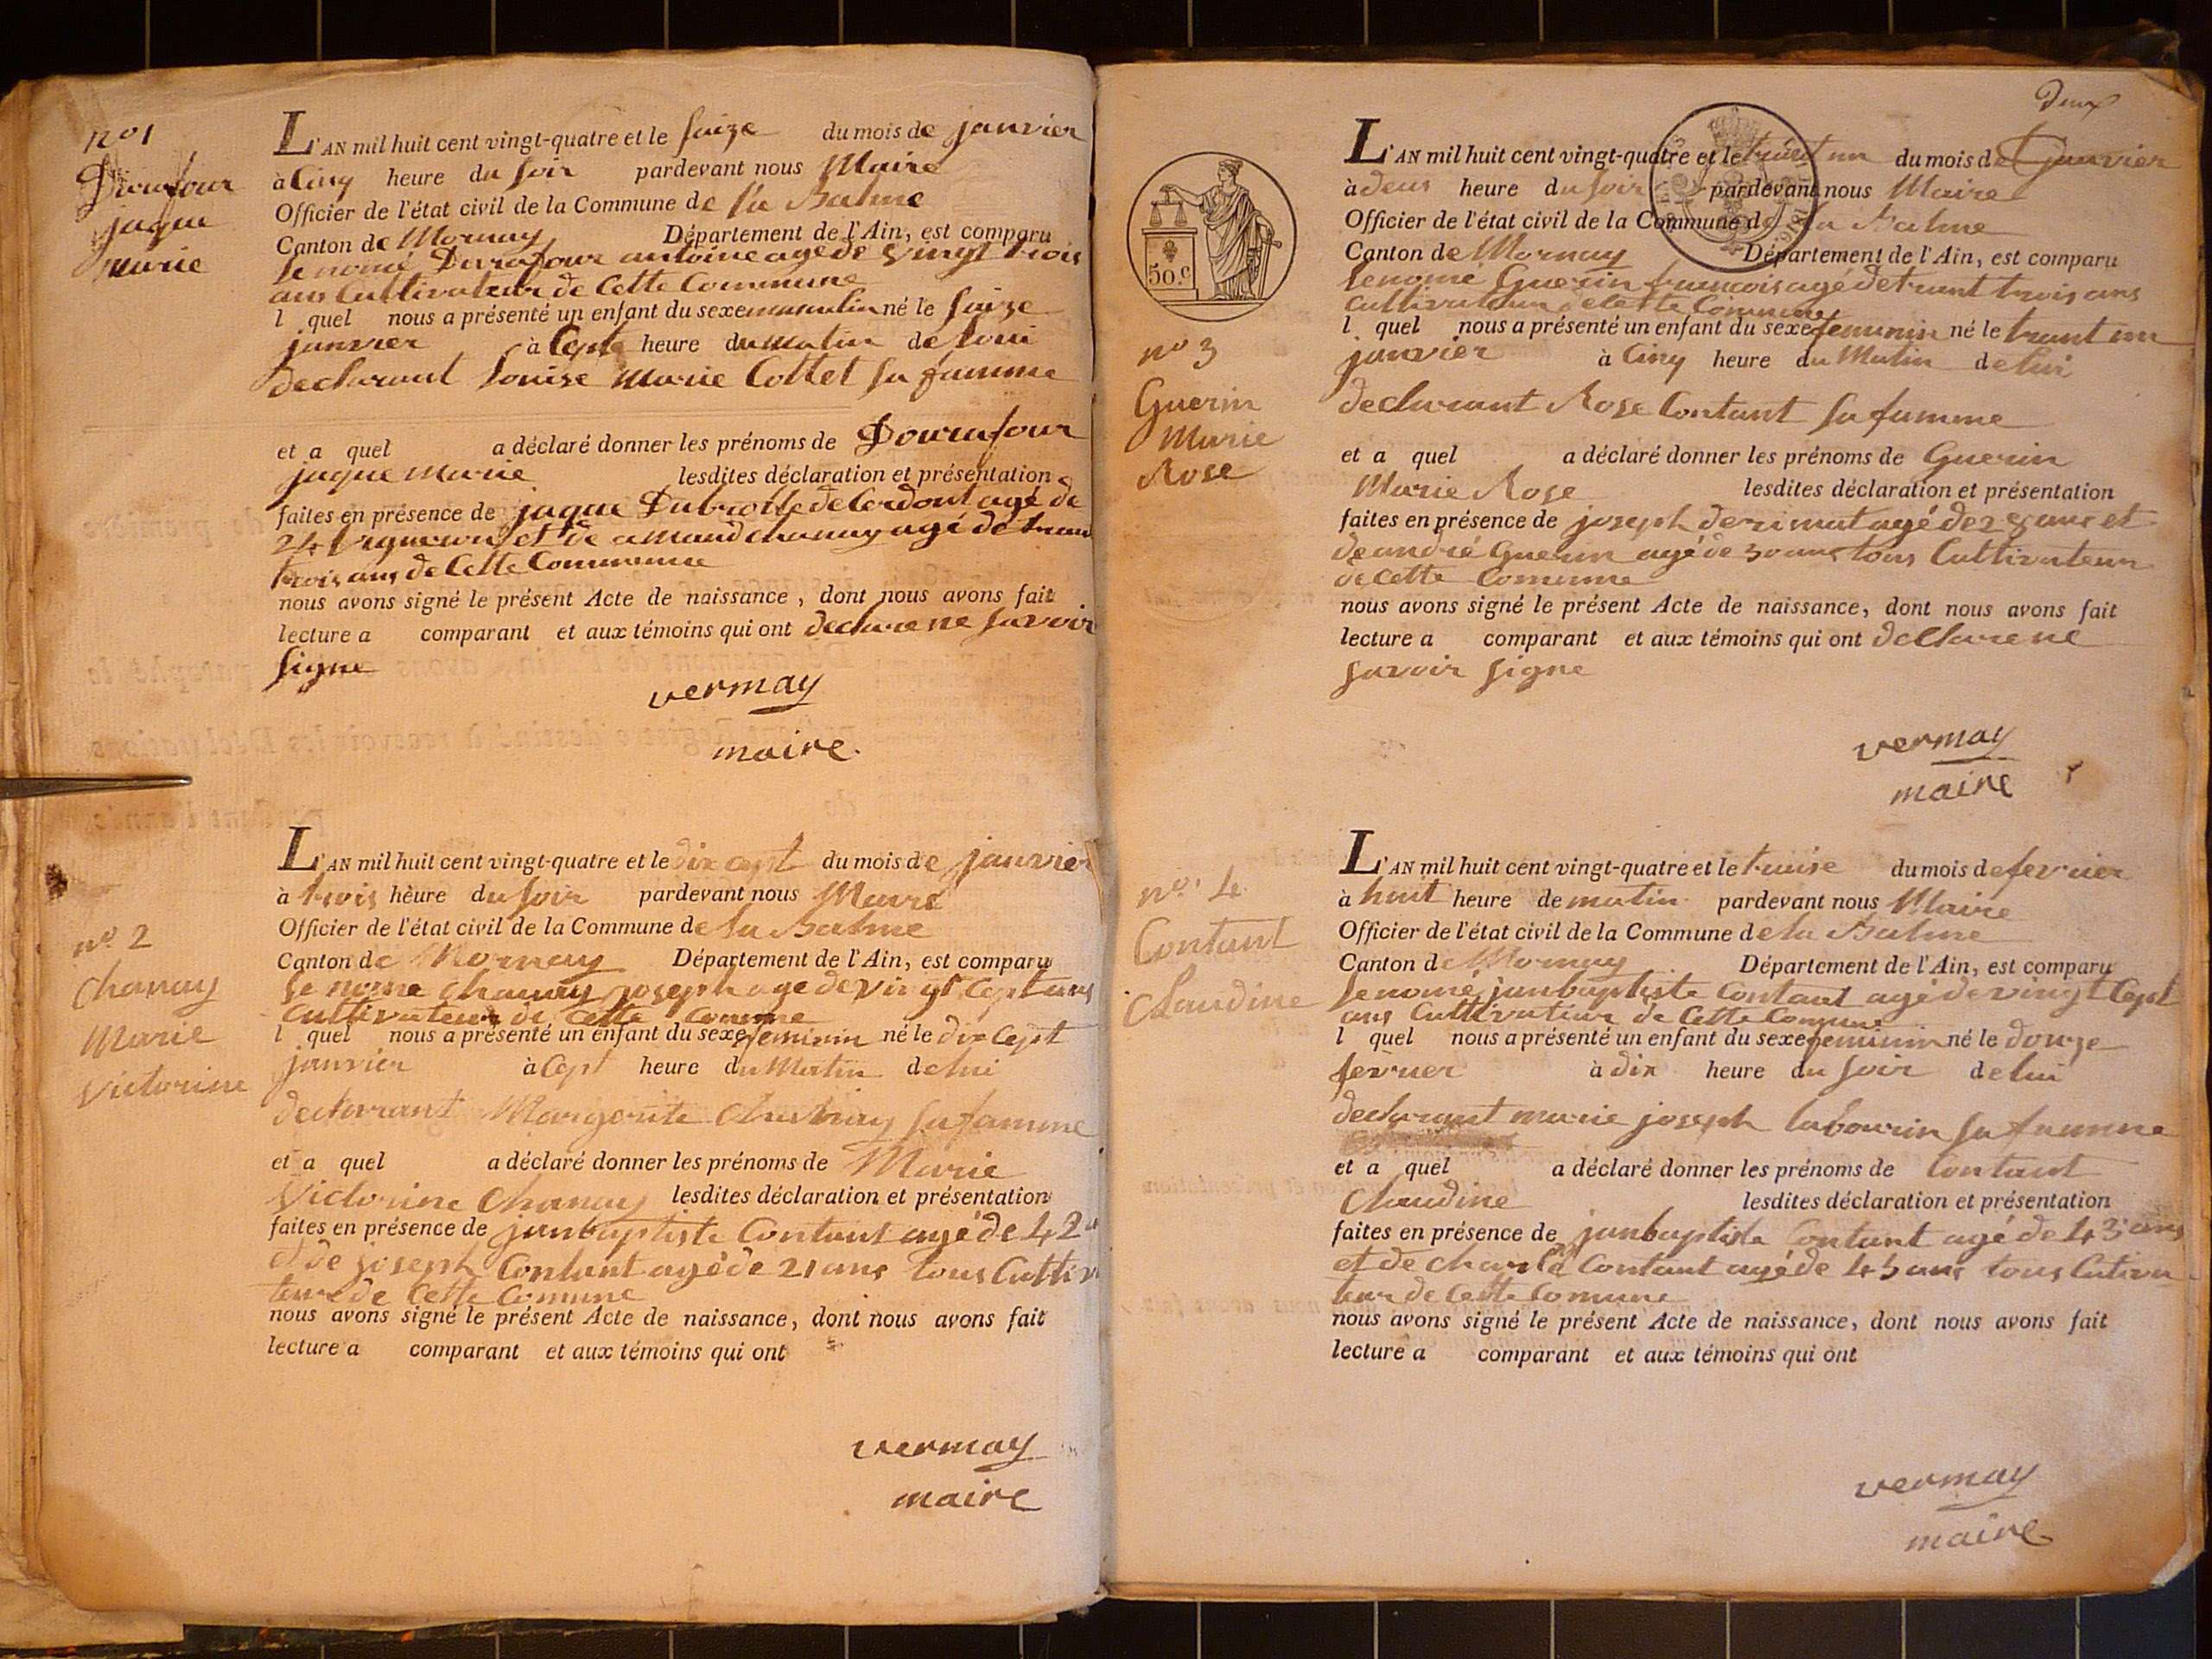 nº 1
Durafour
jaque
marie
L'AN mil huit cent vingt-quatre et le saize du mois de janvier
à Cinq heure du soir pardevant nous Maire
Officier de l'état civil de la Commune de la Balme
Canton de Mornay Département de l'Ain, est comparu
le nomé Durafour antoine agé de vingt trois
ans Cultivateur de Cette Commune
l quel nous a présenté un enfant du sexe masculin né le saize
janvier à Cept heure du matin de loui
declarant Louise Marie Cottet sa famme
et a quel a déclaré donner les prénoms de Dourafour
jaque marie lesdites déclaration et présentation
faites en présence de jaque de Cordont agé de
24 vigneron et de amand chanay agé de trant
trois ans de Cette Commune
nous avons signé le présent Acte de naissance, dont nous avons fait
lecture a comparant et aux témoins qui ont declare ne savoir
signe
vermay
maire.
nº 2
Chanay
Marie
Victorine
L'AN mil huit cent vingt-quatre et le dix cept du mois de janvier
à trois heure du soir pardevant nous Maire
Officier de l'état civil de la Commune de la Balme
Canton de Mornay Département de l'Ain, est comparu
le nome Chanay joseph age de vingt Cept ans
Cultivateur de Cette Comune
l quel nous a présenté un enfant du sexe feminin né le dix Cept
janvier à Cept heure du Matin de lui
declarant Margorite sa famme
et a quel a déclaré donner les prénoms de Marie
Victorine Chanay lesdites déclaration et présentation
faites en présence de janbaptiste Contant agé de 42
et de joseph Contant agé de 21 ans tous Cultiv
teur de Cette Comune
nous avons signé le présent Acte de naissance, dont nous avons fait
lecture a comparant et aux témoins qui ont
vermay
maire
Deux
50.c
nº 3
Guerin
Marie
Rose
L'AN mil huit cent vingt-quatre et le trant un du mois de janvier
à deus heure du soir pardevant nous Maire
Officier de l'état civil de la Commune de la Balme
Canton de Mornay Département de l'Ain, est comparu
le nomé Guerin francois agé de trant trois ans
Cultivateur de Cette Comune
l quel nous a présenté un enfant du sexe feminin né le trant un
janvier à Cinq heure du Matin de lui
declarant Rose Contant sa famme
et a quel a déclaré donner les prénoms de Guerin
Marie Rose lesdites déclaration et présentation
faites en présence de joseph agé de ans et
de andré Guerin agé de 30 ans tous Cultivateur
de Cette Comune
nous avons signé le présent Acte de naissance, dont nous avons fait
lecture a comparant et aux témoins qui ont declare ne
savoir signe
vermay
maire
nº 4
Contant
Claudine
L'AN mil huit cent vingt-quatre et le traise du mois de fevrier
à huit heure de matin pardevant nous Maire
Officier de l'état civil de la Commune de la Balme
Canton de Mornay Département de l'Ain, est comparu
le nomé janbaptiste Contant agé de vingt Cept
ans Cultivateur de Cette Comune
l quel nous a présenté un enfant du sexe feminin né le douze
fevrier à dix heure du soir de lui
declarant marie joseph labourin sa famme
et a quel a déclaré donner les prénoms de Contant
Claudine lesdites déclaration et présentation
faites en présence de janbaptiste Contant agé de 43 ans
et de charle Contant agé de 45 ans tous Cutiva
teur de Cette Comune
nous avons signé le présent Acte de naissance, dont nous avons fait
lecture a comparant et aux témoins qui ont
vermay
maire